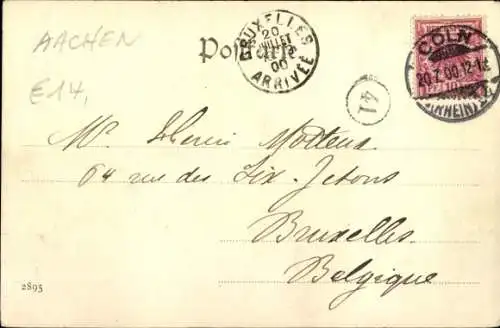 AACHEN
E14,
Postkarte
BRUXELLES
20
JUILLET
00
ARRIVÉE
CÖLN
20.7.00.12-1
(RHEIN)
41
Mr.
64 rue des Six-Jetons
Bruxelles.
Belgique
2895